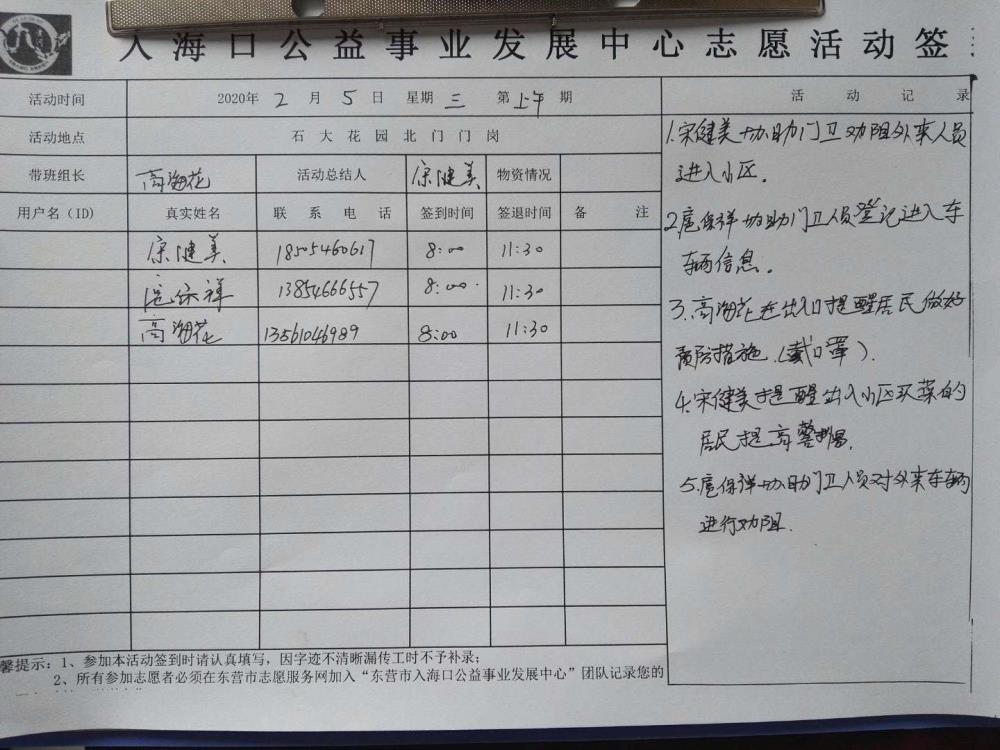 入海口公益事业发展中心志愿活动签
活动时间 2020年 2 月 5 日 星期 三 第 上午 期 活动记录
活动地点 石大花园北门门岗
带班组长 高海花 活动总结人 宋健美 物资情况
用户名(ID) 真实姓名 联系电话 签到时间 签退时间 备注
宋健美 18505460617 8:00 11:30
扈保祥 13854666557 8:00 11:30
高海花 13561046989 8:00 11:30
1.宋健美协助门卫劝阻外来人员
进入小区.
2.扈保祥协助门卫人员登记进入车
车辆信息.
3.高海花在出入口提醒居民做好
预防措施.(戴口罩).
4.宋健美提醒出入小区买菜的
居民提高警惕.
5.扈保祥协助门卫人员对外来车辆
进行劝阻.
馨提示:1、参加本活动签到时请认真填写,因字迹不清晰漏传工时不予补录;
2、所有参加志愿者必须在东营市志愿服务网加入“东营市入海口公益事业发展中心”团队记录您的